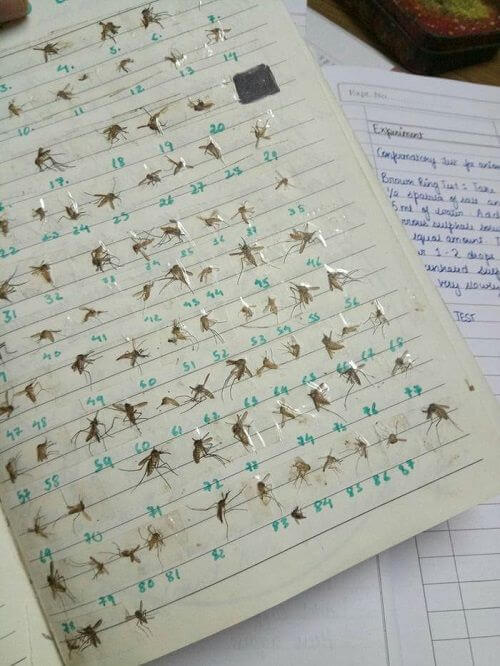 3. 4. 5. 6. 7.
10. 11 12 13 14
17. 18 19 20
22 23 24 25 26 27 28 29
31 32 33 34 35 36 37 35
40 41 42 43 44 45 46
47 48 49 50 51 52 53 54 55 56
57 58 59 60 61 62 63 64 65 66 67 68
69 70 71 72 73 74 75 76 77
78 79 80 81 82 83 84 85 86 87
Expt. No.
Experiment
Brown Ring Test : Take
1/2 spatula of salt an
5 ml of water. Add
rrous sulphate solu
equal amount
1-2 drops
very slowly
TEST